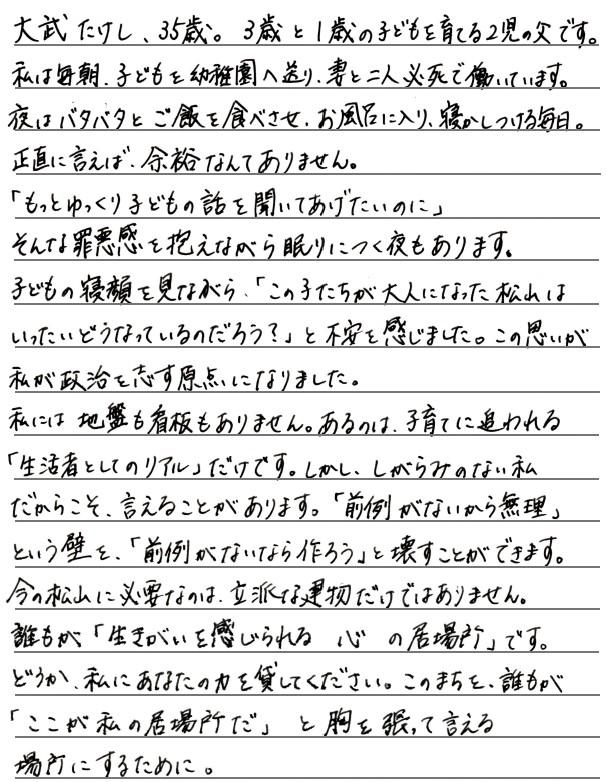 大武 たけし、35歳。 3歳と1歳の子どもを育てる2児の父です。
私は毎朝、子どもを幼稚園へ送り、妻と二人必死で働いています。
夜はバタバタとご飯を食べさせ、お風呂に入り、寝かしつける毎日。
正直に言えば、余裕なんてありません。
「もっとゆっくり子どもの話を聞いてあげたいのに」
そんな罪悪感を抱えながら眠りにつく夜もあります。
子どもの寝顔を見ながら、「この子たちが大人になった松山は
いったいどうなっているのだろう?」と不安を感じました。この思いが
私が政治を志す原点になりました。
私には 地盤も看板もありません。あるのは、子育てに追われる
「生活者としてのリアル」だけです。しかし、しがらみのない私
だからこそ、言えることがあります。「前例がないから無理」
という壁を、「前例がないなら作ろう」と壊すことができます。
今の松山に必要なのは、立派な建物だけではありません。
誰もが「生きがいを感じられる 心 の居場所」です。
どうか、私にあなたの力を貸してください。このまちを、誰もが
「ここが私の居場所だ」 と胸を張って言える
場所にするために。